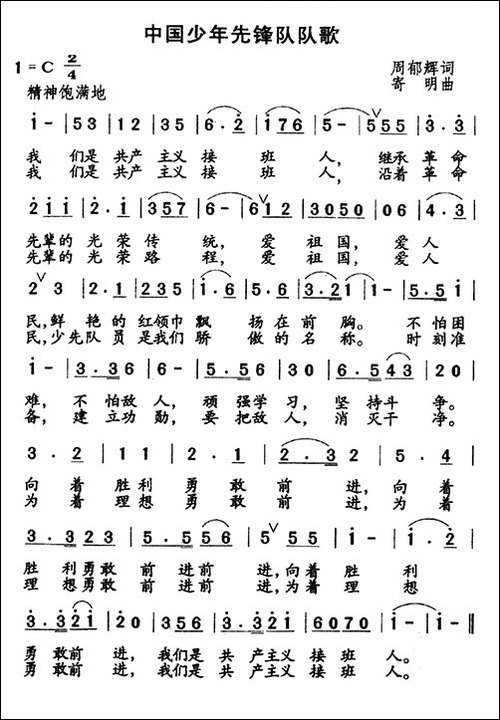 中国少年先锋队队歌
1 = C 2/4
周郁辉 词
寄 明 曲
精神饱满地
i - | 5 3 | 1 2 | 3 5 | 6 . 2 | i 7 6 | 5 - | 5 5 5 | 3 . 3 |
我 们是 共产 主义 接 班 人, 继承 革命
我 们是 共产 主义 接 班 人, 沿着 革命
2 i i | 2 . i | 3 5 7 | 6 - | 6 - | 6 1 2 | 3 0 5 0 | 0 6 | 4 . 3 |
先辈的 光 荣 传 统, 爱 祖 国, 爱 人
先辈的 光 荣 路 程, 爱 祖 国, 爱 人
2 3 | 2 . 1 | 2 3 5 | i . 6 | 5 . 5 | 3 . 2 1 | 1 - | 5 . 5 i |
民,鲜 艳 的 红领巾 飘 扬 在 前 胸。 不 怕困
民,少先队 员 是我们 骄 傲 的 名 称。 时 刻准
i - | 3 . 3 6 | 6 - | 5 . 5 3 | 2 - | 3 0 | 6 . 5 4 3 | 2 0 |
难, 不 怕敌 人, 顽 强学 习, 坚 持斗 争。
备, 建 立功 勋, 要 把敌 人, 消 灭干 净。
3 . 2 | 1 1 | 2 . 1 | 3 - | 2 . 3 2 | 5 . 4 |
向 着 胜 利 勇 敢 前 进, 向 着
为 着 理 想 勇 敢 前 进, 为 着
3 . 3 2 3 | 5 . 5 5 6 | 5 5 5 | i - | i . 2 |
胜 利勇敢 前 进前 进,向着 胜 利
理 想勇敢 前 进前 进,为着 理 想
3 . 3 2 i | 2 0 | 3 5 6 | 3 . 3 | 3 . 2 i | 6 0 7 0 | i - | i - ‖
勇 敢前 进, 我们是 共 产主义 接 班 人。
勇 敢前 进, 我们是 共 产主义 接 班 人。